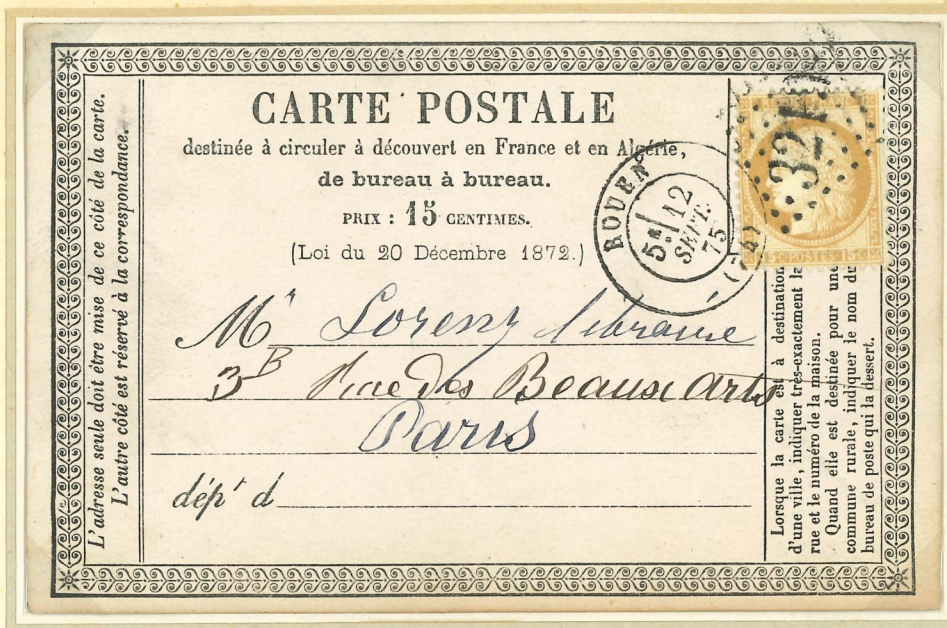 L'adresse seule doit être mise de ce côté de la carte.
L'autre côté est réservé à la correspondance.
CARTE POSTALE
destinée à circuler à découvert en France et en Algérie,
de bureau à bureau.
PRIX : 15 CENTIMES.
(Loi du 20 Décembre 1872.)
ROUEN
5E/ 12
SEPT.
75
(74)
321
15 C. POSTES 15 C.
Mr Lorenz libraire
3B Rue des Beaux arts
Paris
dépt d
Lorsque la carte est à destination
d'une ville, indiquer très-exactement la
rue et le numéro de la maison.
Quand elle est destinée pour une
commune rurale, indiquer le nom du
bureau de poste qui la dessert.